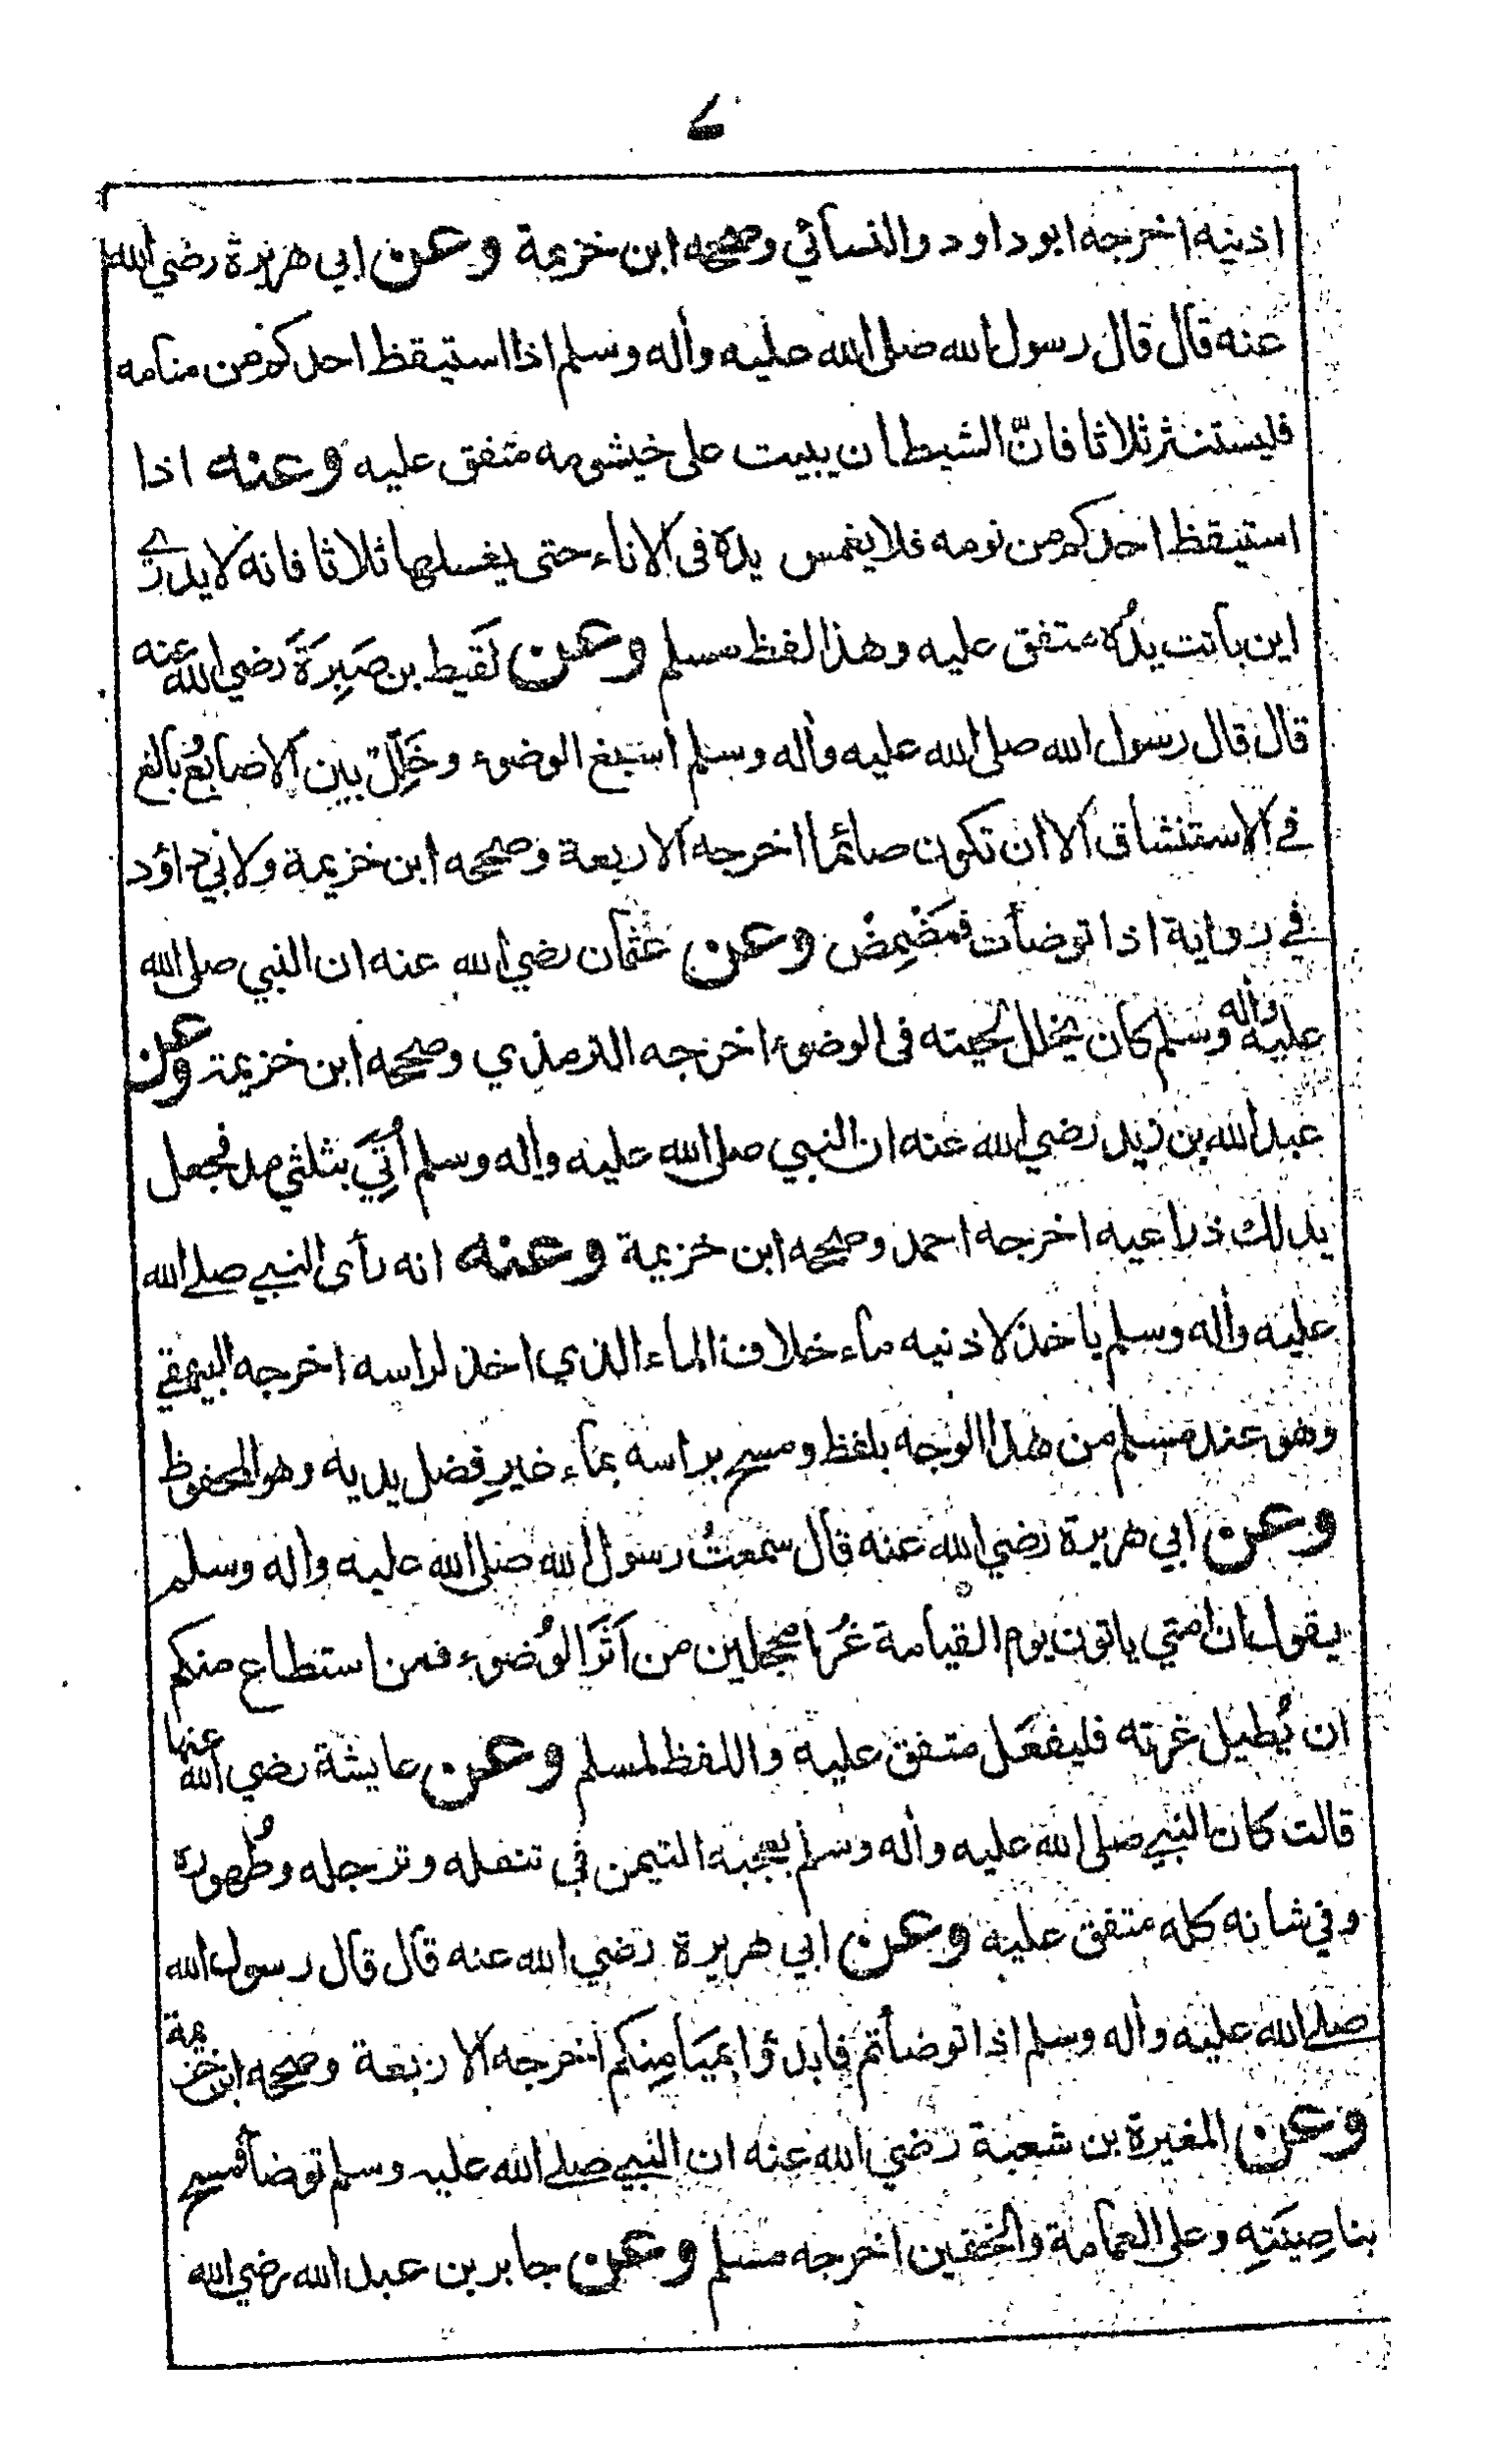 ۷
اذنيه اخرجه ابوداود والنسائي وصححه ابن خزيمة وعن ابي هريرة رضي الله
عنه قال قال رسول الله صلى الله عليه وأله وسلم اذا استيقظ احدكم من منامه
فليستنثر ثلاثا فانّ الشيطان يبيت على خيشومه متفق عليه وعنه اذا
استيقظ احدكم من نومه فلا يغمس يده فى الاناء حتى يغسلها ثلاثا فانه لا يدري
اين باتت يدُه متفق عليه وهذا لفظ مسلم وعن لَقيط بن صَبِرَةَ رضي الله عنه
قال قال رسول الله صلى الله عليه وأله وسلم أسبغ الوضوء وخَلِّل بين الاصابع وبالغ
في الاستنشاق الا ان تكون صائما اخرجه الاربعة وصححه ابن خزيمة ولابي داؤد
في رواية اذا توضأت فمَضْمِضْ وعن عثمان رضي الله عنه ان النبي صلى الله
عليه وأله وسلم كان يخلل لحيته فى الوضوء اخرجه الترمذي وصححه ابن خزيمة وعن
عبد الله بن زيد رضي الله عنه ان النبي صلى الله عليه وأله وسلم أُتِيَ بثلثي مد فجعل
يدلك ذراعيه اخرجه احمد وصححه ابن خزيمة وعنه انه رأى النبي صلى الله
عليه وأله وسلم ياخذ لاذنيه ماء خلاف الماء الذي اخذ لراسه اخرجه البيهقي
وهو عند مسلم من هذا الوجه بلفظ ومسح براسه بماء غيرِ فضل يديه وهو المحفوظ
وعن ابي هريرة رضي الله عنه قال سمعتُ رسول الله صلى الله عليه واله وسلم
يقول ان امتي ياتون يوم القيامة غُرا محجلين من اَثَر الوُضوء فمن استطاع منكم
ان يُطيل غرته فليفعَل متفق عليه واللفظ لمسلم وعن عايشة رضي الله عنها
قالت كان النبي صلى الله عليه وأله وسلم يعجبه التيمن في تنعله وترجله وطُهوره
وفي شانه كله متفق عليه وعن ابي هريرة رضي الله عنه قال قال رسول الله
صلى الله عليه وأله وسلم اذا توضأتم فابدؤا بميَامِنِكم اخرجه الاربعة وصححه ابن خزيمة
وعن المغيرة بن شعبة رضي الله عنه ان النبي صلى الله عليه وسلم توضأ فمسح
بناصِيَتِه وعلى العمامة والخفين اخرجه مسلم وعن جابر بن عبد الله رضي الله